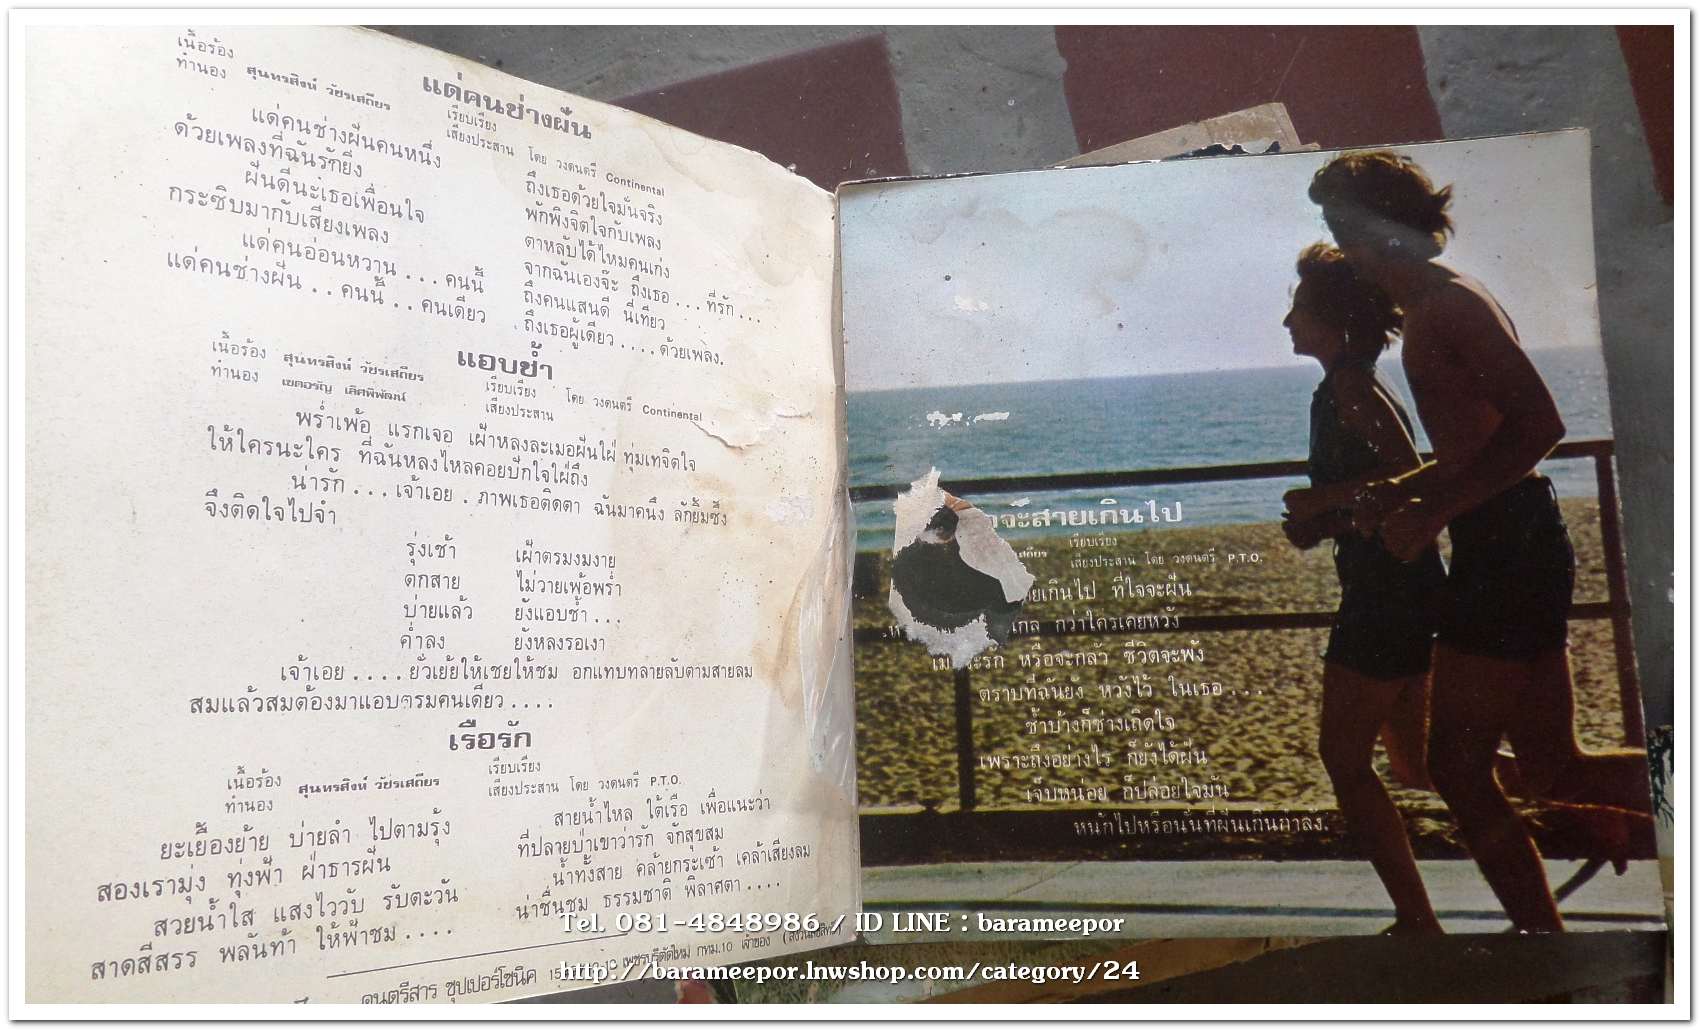 แด่คนช่างฝัน
เนื้อร้อง
ทำนอง สุนทรสิงห์ วัชรเสถียร
เรียบเรียง
เสียงประสาน โดย วงดนตรี Continental
แด่คนช่างฝันคนหนึ่ง
ด้วยเพลงที่ฉันรักยิ่ง
ฝันดีนะเธอเพื่อนใจ
กระซิบมากับเสียงเพลง
แด่คนอ่อนหวาน ... คนนี้
แด่คนช่างฝัน .. คนนี้ .. คนเดียว
ถึงเธอด้วยใจมั่นจริง
พักพิงจิตใจกับเพลง
ตาหลับได้ไหมคนเก่ง
จากฉันเองจ๊ะ ถึงเธอ ... ที่รัก ...
ถึงคนแสนดี นี่เทียว
ถึงเธอผู้เดียว .... ด้วยเพลง.
แอบช้ำ
เนื้อร้อง สุนทรสิงห์ วัชรเสถียร
ทำนอง เชคอรัญ เลิศพิพัฒน์
เรียบเรียง
เสียงประสาน โดย วงดนตรี Continental
พร่ำเพ้อ แรกเจอ เฝ้าหลงละเมอฝันใฝ่ ทุ่มเทจิตใจ
ให้ใครนะใคร ที่ฉันหลงไหลคอยปักใจใฝ่ถึง
น่ารัก ... เจ้าเอย . ภาพเธอติดตา ฉันมาคนึง ลักยิ้มซึ้ง
จึงติดใจไปจำ
รุ่งเช้า เฝ้าตรมงมงาย
ตกสาย ไม่วายเพ้อพร่ำ
บ่ายแล้ว ยังแอบช้ำ ...
ค่ำลง ยังหลงรอเงา
เจ้าเอย .... ยั่วเย้ยให้เชยให้ชม อกแทบทลายลับตามสายลม
สมแล้วสมต้องมาแอบตรมคนเดียว ....
เรือรัก
เนื้อร้อง
ทำนอง สุนทรสิงห์ วัชรเสถียร
เรียบเรียง
เสียงประสาน โดย วงดนตรี P.T.O.
ยะเยื้องย้าย บ่ายลำ ไปตามรุ้ง
สองเรามุ่ง ทุ่งฟ้า ฝ่าธารฝัน
สวยน้ำใส แสงไววับ รับตะวัน
สาดสีสรร พลันท้า ให้ฟ้าชม ....
สายน้ำไหล ใต้เรือ เพื่อแนะว่า
ที่ปลายป่าเขาว่ารัก จักสุขสม
น้ำทั้งสาย คล้ายกระเซ้า เคล้าเสียงลม
น่าชื่นชม ธรรมชาติ พิลาศตา ....
ดนตรีสาร ซุปเปอร์โซนิค เพชรบุรีตัดใหม่ กทม.10 เจ้าของ
จะสายเกินไป
เรียบเรียง
เสียงประสาน โดย วงดนตรี P.T.O.
เกินไป ที่ใจจะฝัน
ไกล กว่าใครเคยหวัง
รัก หรือจะกลัว ชีวิตจะพัง
ตราบที่ฉันยัง หวังไว้ ในเธอ ...
ช้ำบ้างก็ช่างเถิดใจ
เพราะถึงอย่างไร ก็ยังได้ฝัน
เจ็บหน่อย ก็ปล่อยใจมัน
หนักไปหรือนั่นที่ฝันเกินกำลัง.
Tel. 081-4848986 / ID LINE : barameepor
http://barameepor.lnwshop.com/category/24